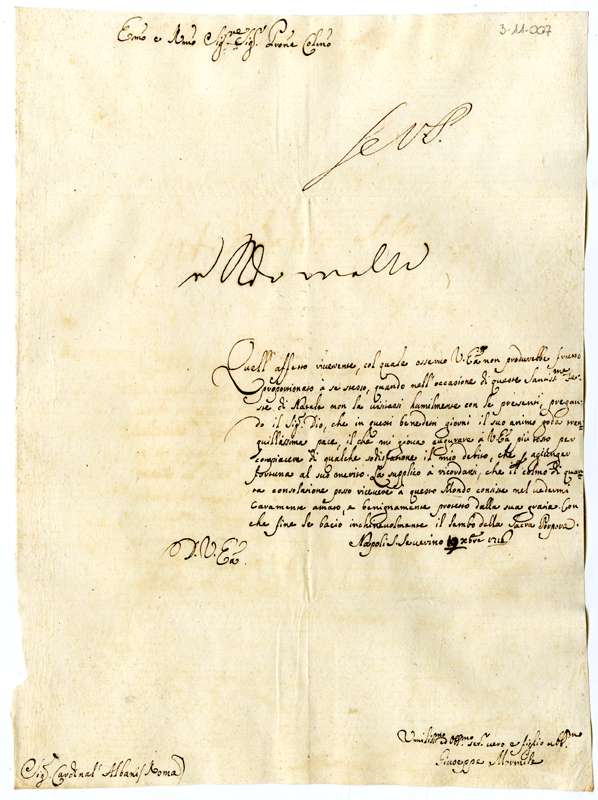 3-11-007
Emo e Rmo Sig.re Sig.r Prone Colmo
Quell'affetto riverente, col quale osservo V. Ea non produrrebbe frutto
proporzionato à se stesso, quando nell'occasione di queste Santissme Fe-
ste di Natale non la visitassi humilmente con la presente, pregan-
do il Sig.r Dio, che in questi benedetti giorni il suo animo goda tran-
quillissima pace, il che mi giova augurare à V. Ea più tosto per
compiacere di qualche sodisfazione il mio debito, che p aggionger
fortuna al suo merito. La supplico à ricordarsi, che il colmo di quan-
ta consolazione posso ricevere à questo Mondo consiste nel vedermi
caramente amato, e benignamente protetto dalla sua grazia. Con
che fine le bacio inchinevolmente il lembo della Sacra Porpora.
Napoli S. Severino 19 Xbre 1716
Di V. Ea.
Umilissmo ed Obbmo serre vero e figlio
Giuseppe Mormile
Sig.r Cardinal Albani Roma